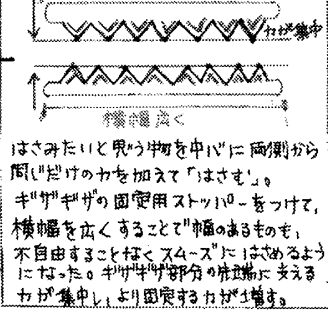 力が集中
横幅広く
はさみたいと思う物を中心に両側から
同じだけの力を加えて「はさむ」。
ギザギザの固定用ストッパーをつけて、
横幅を広くすることで幅のあるものも、
不自由することなくスムーズにはさめるよう
になった。ギザギザ部分の先端に支える
力が集中し、より固定する力が増す。